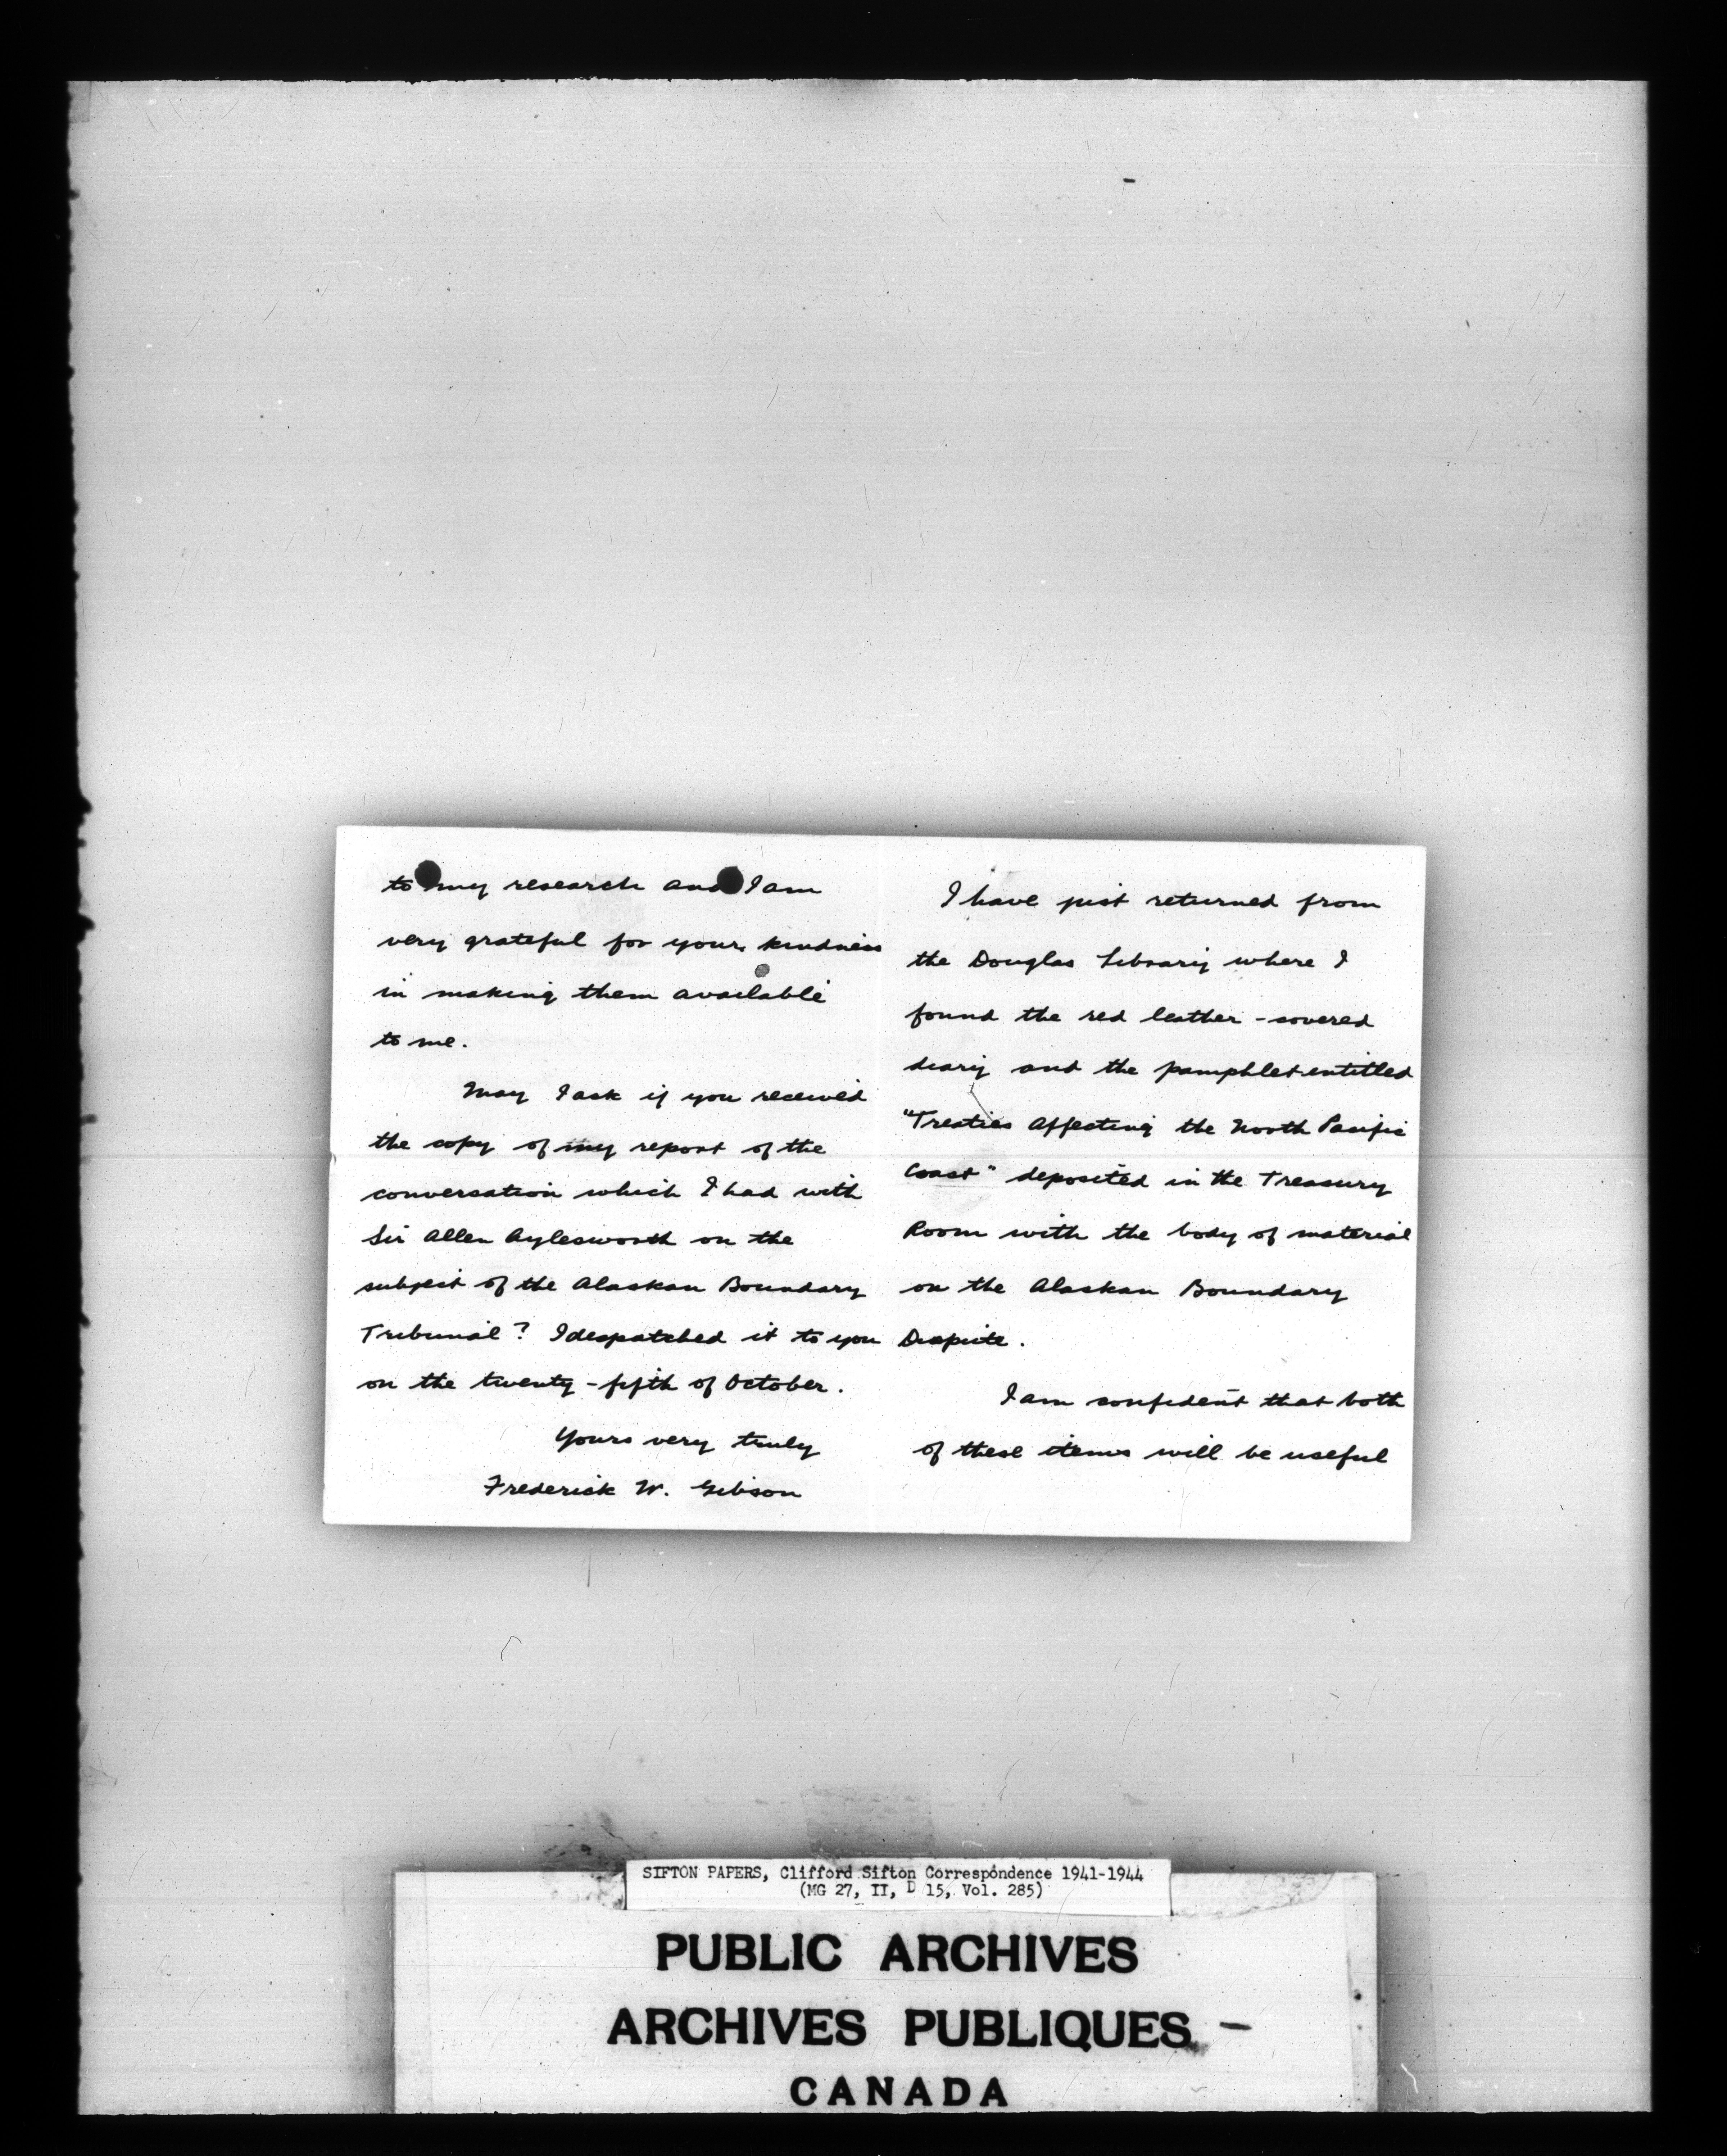 I have just returned from
the Douglas Library where I
found the red leather-covered
diary and the pamphlet entitled
"Treaties Affecting the North Pacific
Coast" deposited in the Treasury
Room with the body of material
on the Alaskan Boundary
Dispute.
I am confident that both
of these items will be useful
to my research and I am
very grateful for your kindness
in making them available
to me.
May I ask if you received
the copy of my report of the
conversation which I had with
Sir Allen Aylesworth on the
subject of the Alaskan Boundary
Tribunal? I despatched it to you
on the twenty-fifth of October.
Yours very truly
Frederick W. Gibson
SIFTON PAPERS, Clifford Sifton Correspondence 1941-1944
(MG 27, II, D 15, Vol. 285)
PUBLIC ARCHIVES
ARCHIVES PUBLIQUES
CANADA